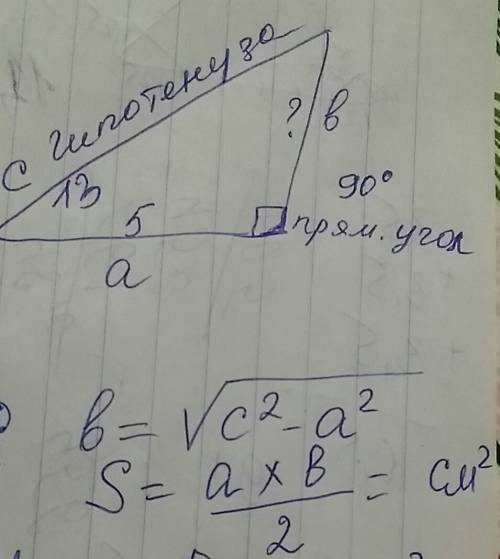 с гипотенуза
13
? в
90°
5
прям. угол
а
в = √c² - a²
S = a x в / 2 = см²